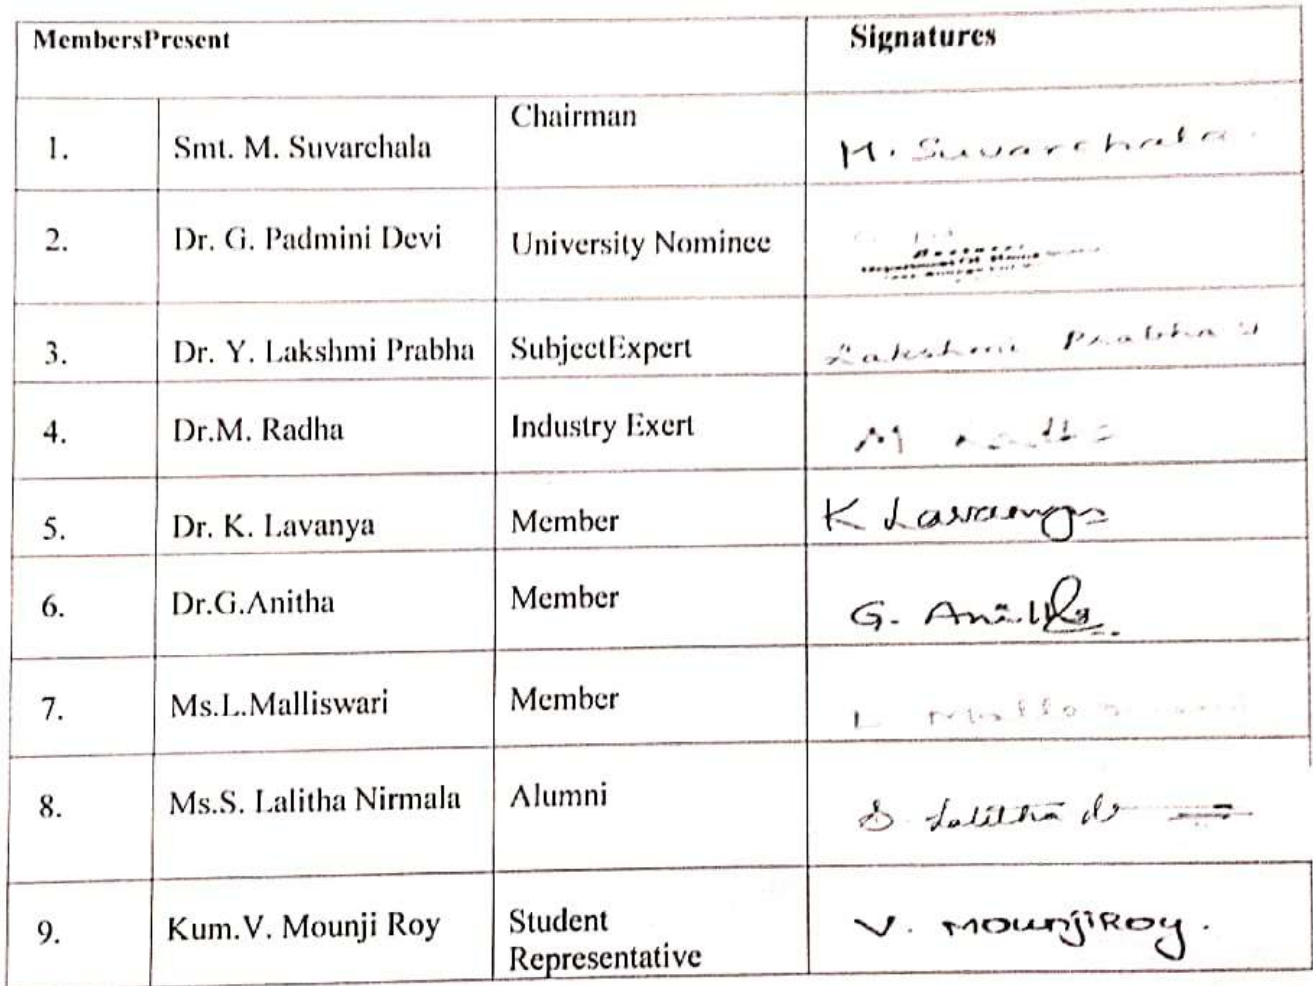 MembersPresent Signatures
1. Smt. M. Suvarchala Chairman M. Suvarchala.
2. Dr. G. Padmini Devi University Nominee
3. Dr. Y. Lakshmi Prabha SubjectExpert Lakshmi Prabha Y
4. Dr.M. Radha Industry Exert M Radha
5. Dr. K. Lavanya Member K Lavanya
6. Dr.G.Anitha Member G. Anitha
7. Ms.L.Malliswari Member L
8. Ms.S. Lalitha Nirmala Alumni S. Lalitha
9. Kum.V. Mounji Roy Student V. MounjiRoy.
Representative